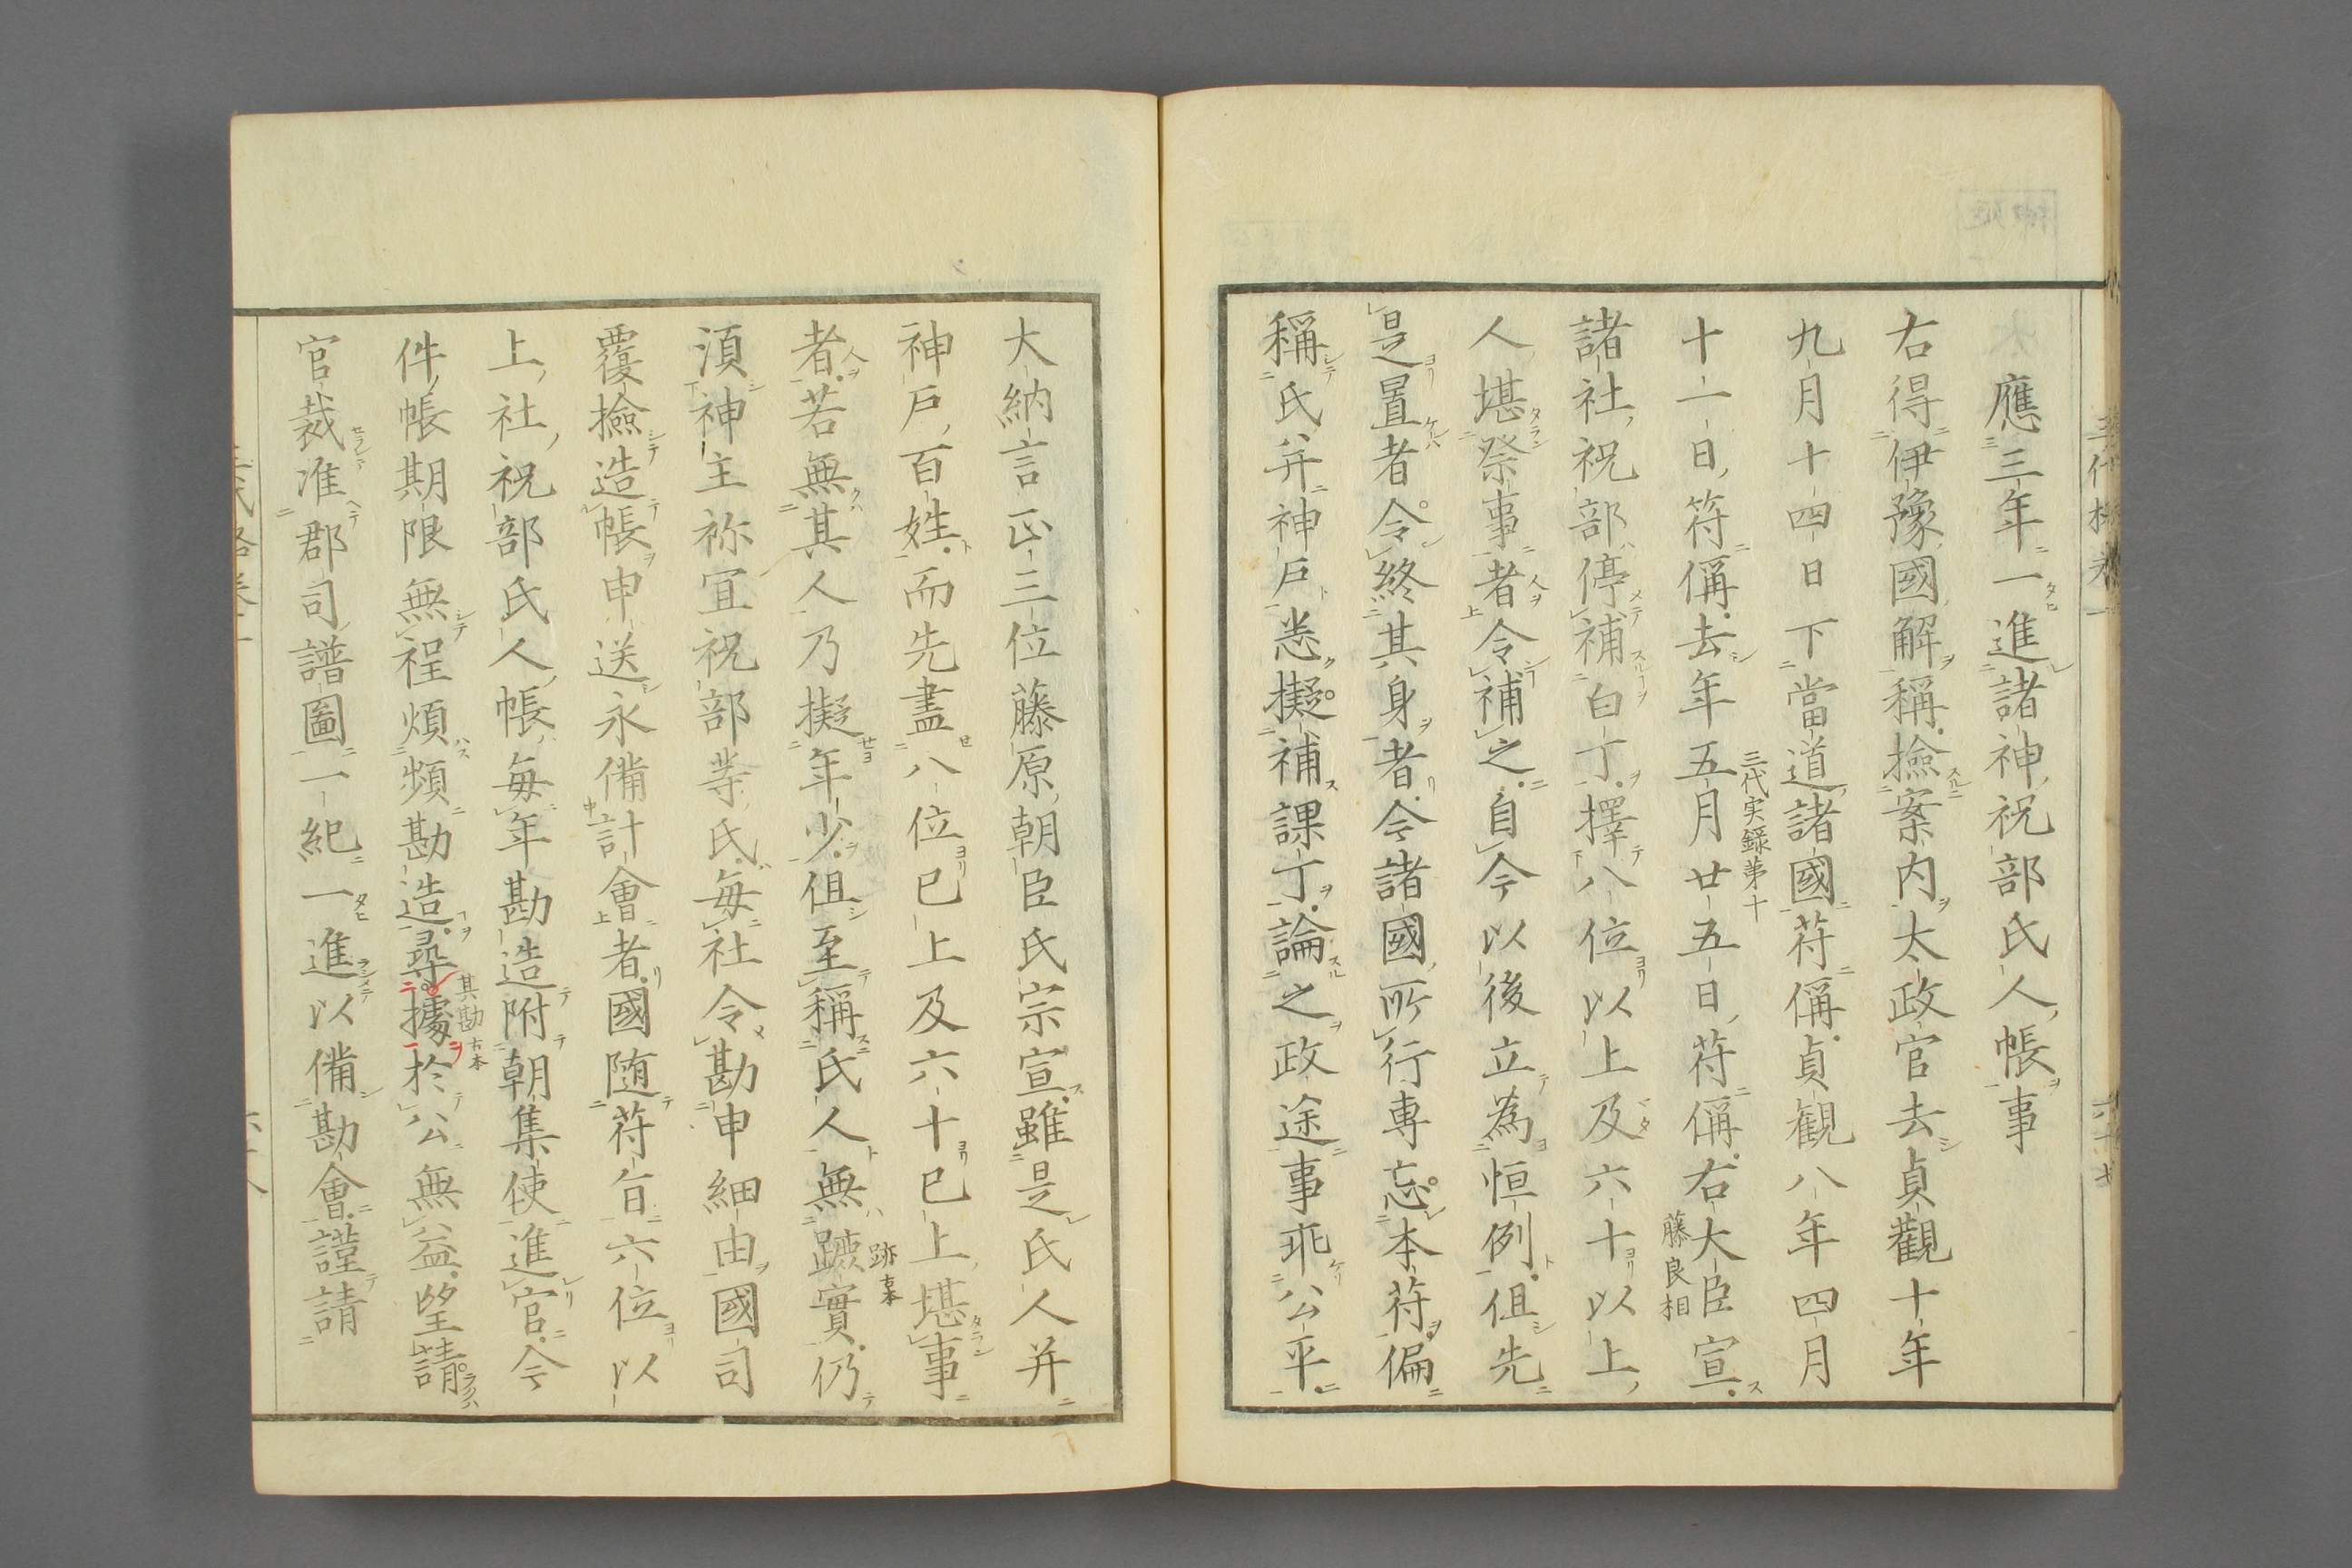 應三年一進諸神祝部氏人帳事
右得伊豫國解稱撿案內太政官去貞觀十年
九月十四日下當道諸國符偁貞觀八年四月
十一日符偁去年五月廿五日符偁右大臣宣
三代実録第十
藤良相
諸社祝部停補白丁擇八位以上及六十以上
人堪祭事者令補之自今以後立為恒例但先
是置者令終其身者今諸國所行專忘本符偏
稱氏并神戶恣擬補課丁論之政途事乖公平
大納言正三位藤原朝臣氏宗宣雖是氏人并
神戶百姓而先盡八位已上及六十已上堪事
者若無其人乃擬年少但至稱氏人無蹤實仍
跡古本
須神主祢宜祝部等氏每社令勘申細由國司
覆撿造帳申送永備計會者國隨符旨六位以
上社祝部氏人帳每年勘造附朝集使進官今
件帳期限無程煩頻勘造尋據於公無益望請
其勘古本
官裁准郡司譜圖一紀一進以備勘會謹請